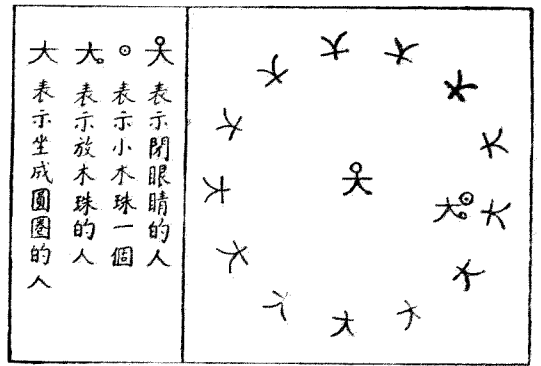 表示閉眼睛的人
表示小木珠一個
大。表示放木珠的人
大 表示坐成圓圈的人